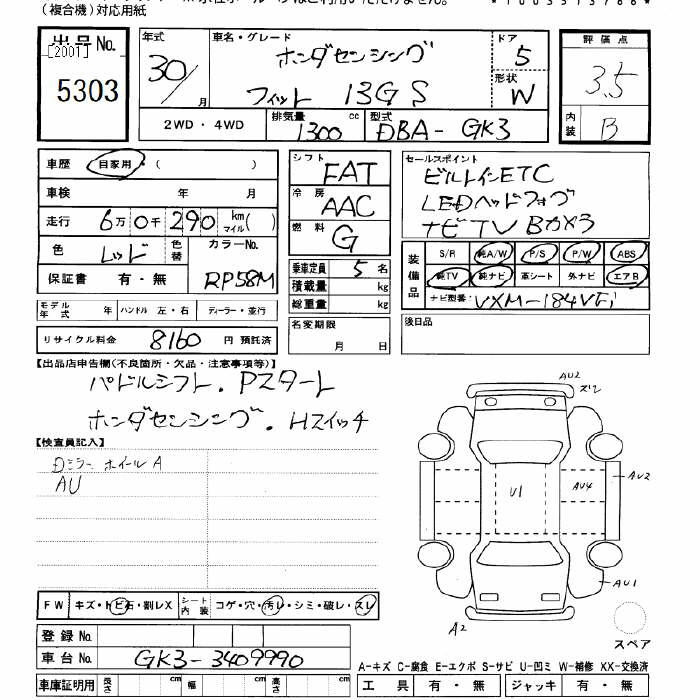 (複合機)対応用紙
出品No. [2001] 5303
年式 30/月
車名・グレード ホンダセンシング
フィット 13GS
ドア 5
形状 W
評価点 3.5
内装 B
2WD・4WD
排気量 1300 cc
型式 DBA-GK3
車歴 自家用・( )
車検 年 月
走行 6万0千290km マイル( )
色 レッド 色替
カラーNo. RP58M
保証書 有・無
モデル年式 年 ハンドル 左・右 ディーラー・並行
リサイクル料金 8160 円 預託済
シフト FAT
冷房 AAC
燃料 G
乗車定員 5 名
積載量 kg
総重量 kg
名変期限 月 日
セールスポイント
ビルトインETC
LEDヘッドフォグ
ナビTV Bカメラ
装備品 S/R 純A/W P/S P/W ABS
純TV 純ナビ 革シート 外ナビ エアB
ナビ型番: VXM-184VFi
後日品
【出品店申告欄(不良箇所・欠品・注意事項等)】
パドルシフト．Pスタート
ホンダセンシング．Hスイッチ
【検査員記入】
Dミラー ホイールA
AU
AU2
U1
AU4
AU2
AU1
A2
スペア
FW キズ・トビ石・割レX シート内装 コゲ・穴・汚レ・シミ・破レ・スレ
登録No.
車台No. GK3-3409990
車庫証明用 長さ cm 幅 cm 高さ cm
A-キズ C-腐食 E-エクボ S-サビ U-凹ミ W-補修 XX-交換済
工具 有・無 ジャッキ 有・無